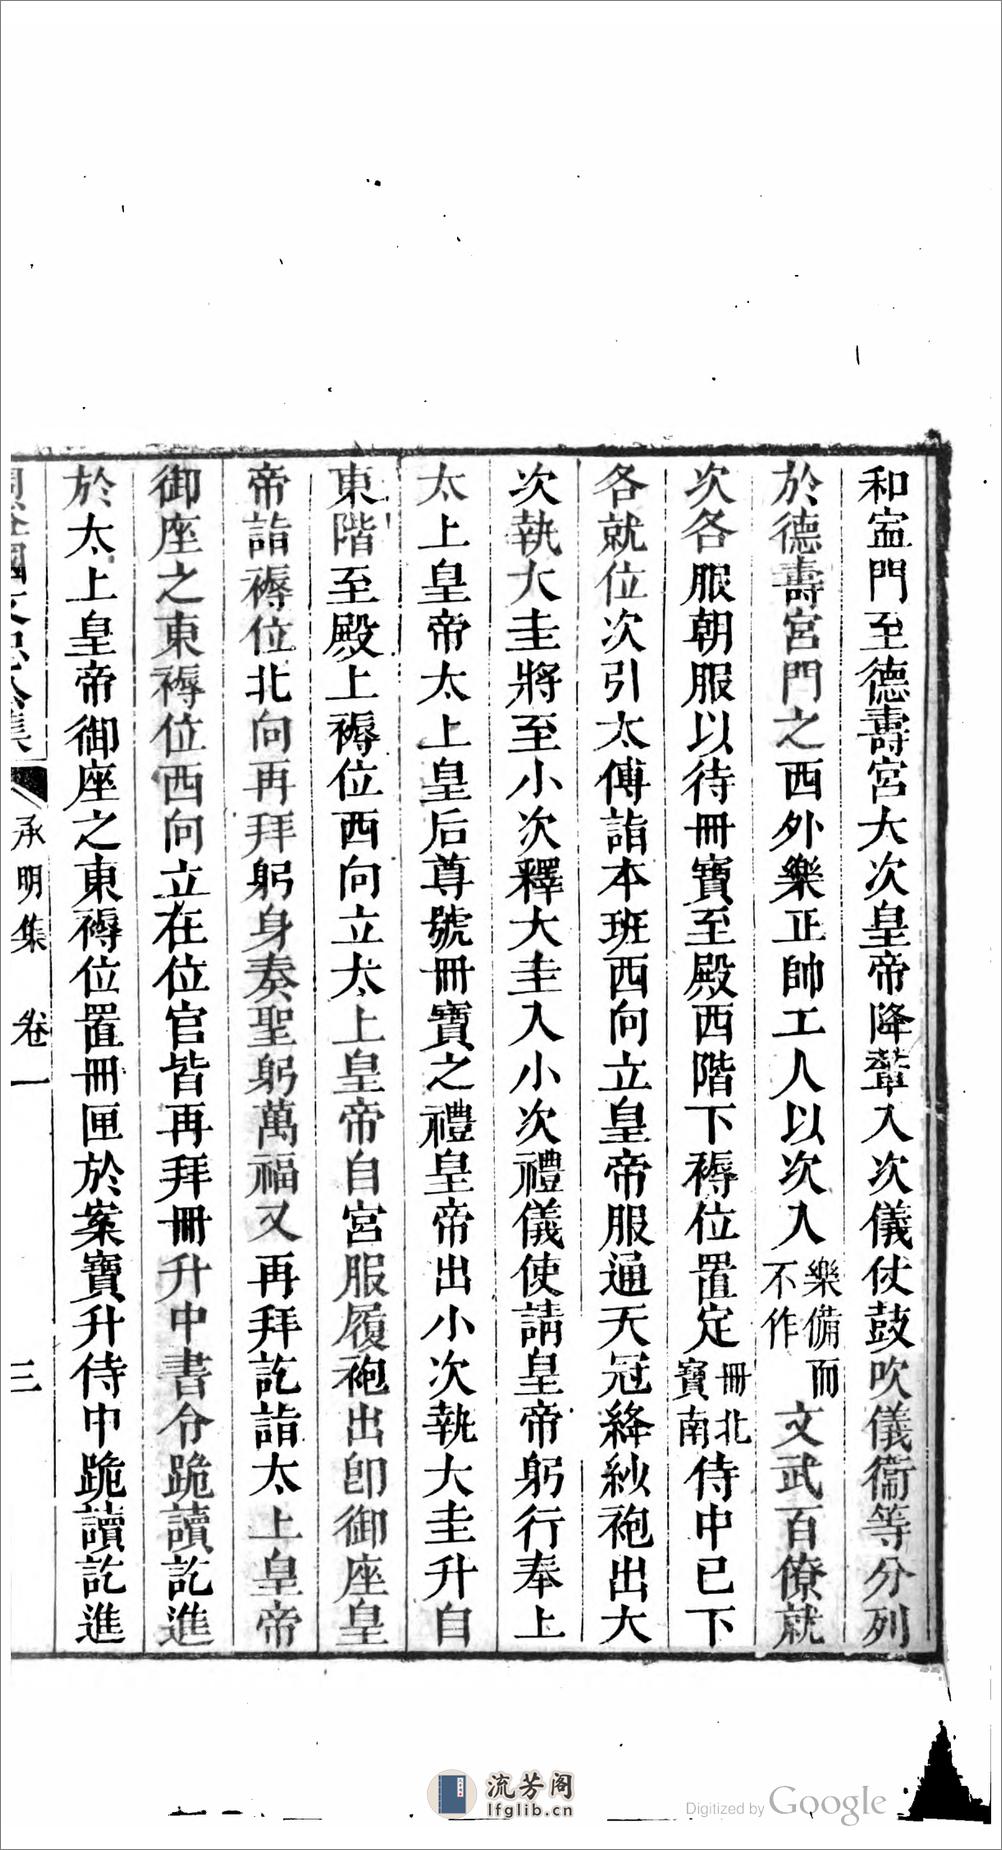 和寍門至德壽宮大次皇帝降輦入次儀仗鼓吹儀衞等分列
於德壽宮門之西外樂正帥工人以次入樂備而不作文武百僚就
次各服朝服以待冊寶至殿西階下褥位置定冊北寶南侍中已下
各就位次引太傅詣本班西向立皇帝服通天冠絳紗袍出大
次執大圭將至小次釋大圭入小次禮儀使請皇帝躬行奉上
太上皇帝太上皇后尊號冊寶之禮皇帝出小次執大圭升自
東階至殿上褥位西向立太上皇帝自宮服履袍出卽御座皇
帝詣褥位北向再拜躬身奏聖躬萬福又再拜訖詣太上皇帝
御座之東褥位西向立在位官皆再拜冊升中書令跪讀訖進
於太上皇帝御座之東褥位置冊匣於案寶升侍中跪讀訖進
承明集 卷一 三
流芳阁
lfglib.cn
Digitized by Google